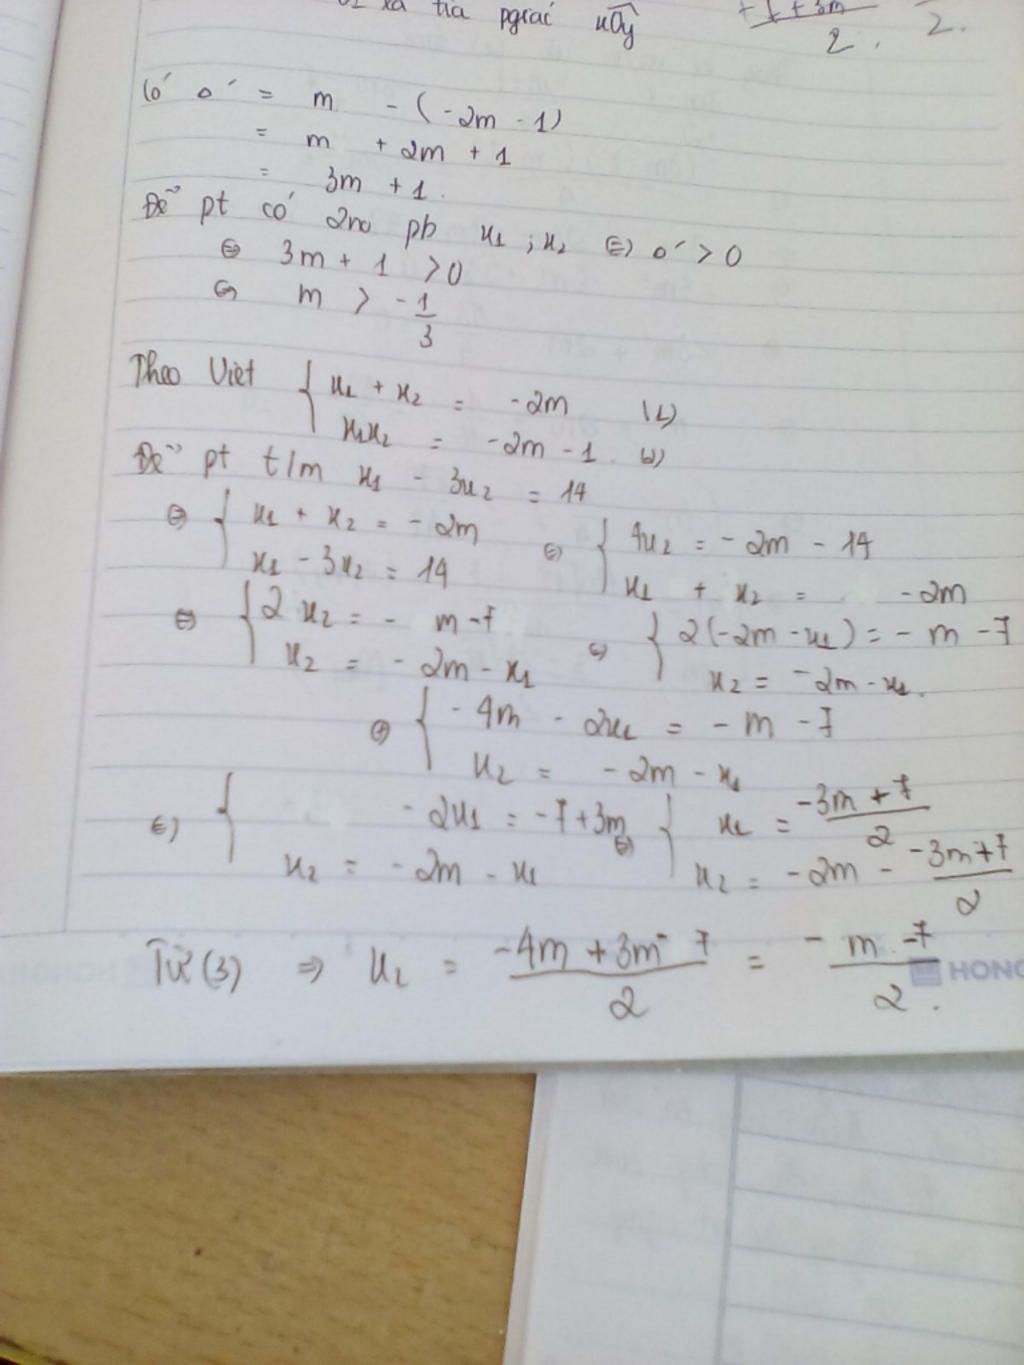 xa tia pgiác xOy + 7 + 3m / 2 . 2.
Có Δ' = m - (-2m - 1)
= m + 2m + 1
= 3m + 1.
Để pt có 2no pb x1 ; x2 ⇔ Δ' > 0
⇔ 3m + 1 > 0
⇔ m > -1/3
Theo Viet { x1 + x2 = -2m (1)
x1x2 = -2m - 1
Để pt t/m x1 - 3x2 = 14
⇔ { x1 + x2 = -2m
x1 - 3x2 = 14
⇔ { 4x2 = -2m - 14
x1 + x2 = -2m
⇔ { 2x2 = - m - 7
x2 = -2m - x1
⇔ { 2(-2m - x1) = - m - 7
x2 = -2m - x1.
⇔ { -4m - 2x1 = - m - 7
x2 = -2m - x1
⇔ { -2x1 = -7 + 3m
x2 = -2m - x1
⇔ { x1 = -3m + 7 / 2
x2 = -2m - -3m + 7 / 2
Từ (3) ⇒ x2 = -4m + 3m - 7 / 2 = -m - 7 / 2 .
HONG